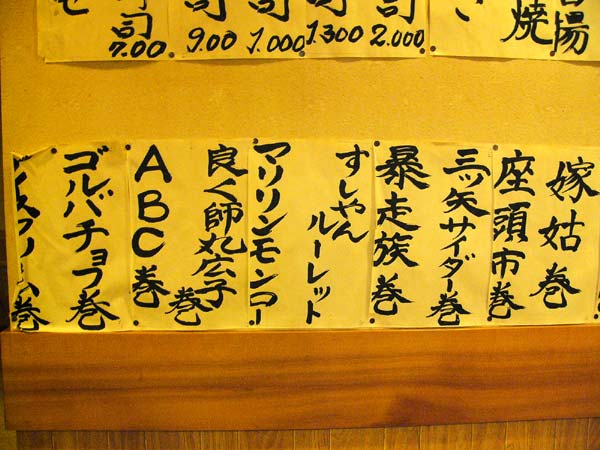 焼
司 2.000
司 1.300
司 1.000
司 9.00
司 7.00
嫁姑巻
座頭市巻
三ッ矢サイダー巻
暴走族巻
すしやんルーレット
マリリンモンロー
良く師丸広子巻
ABC巻
ゴルバチョフ巻